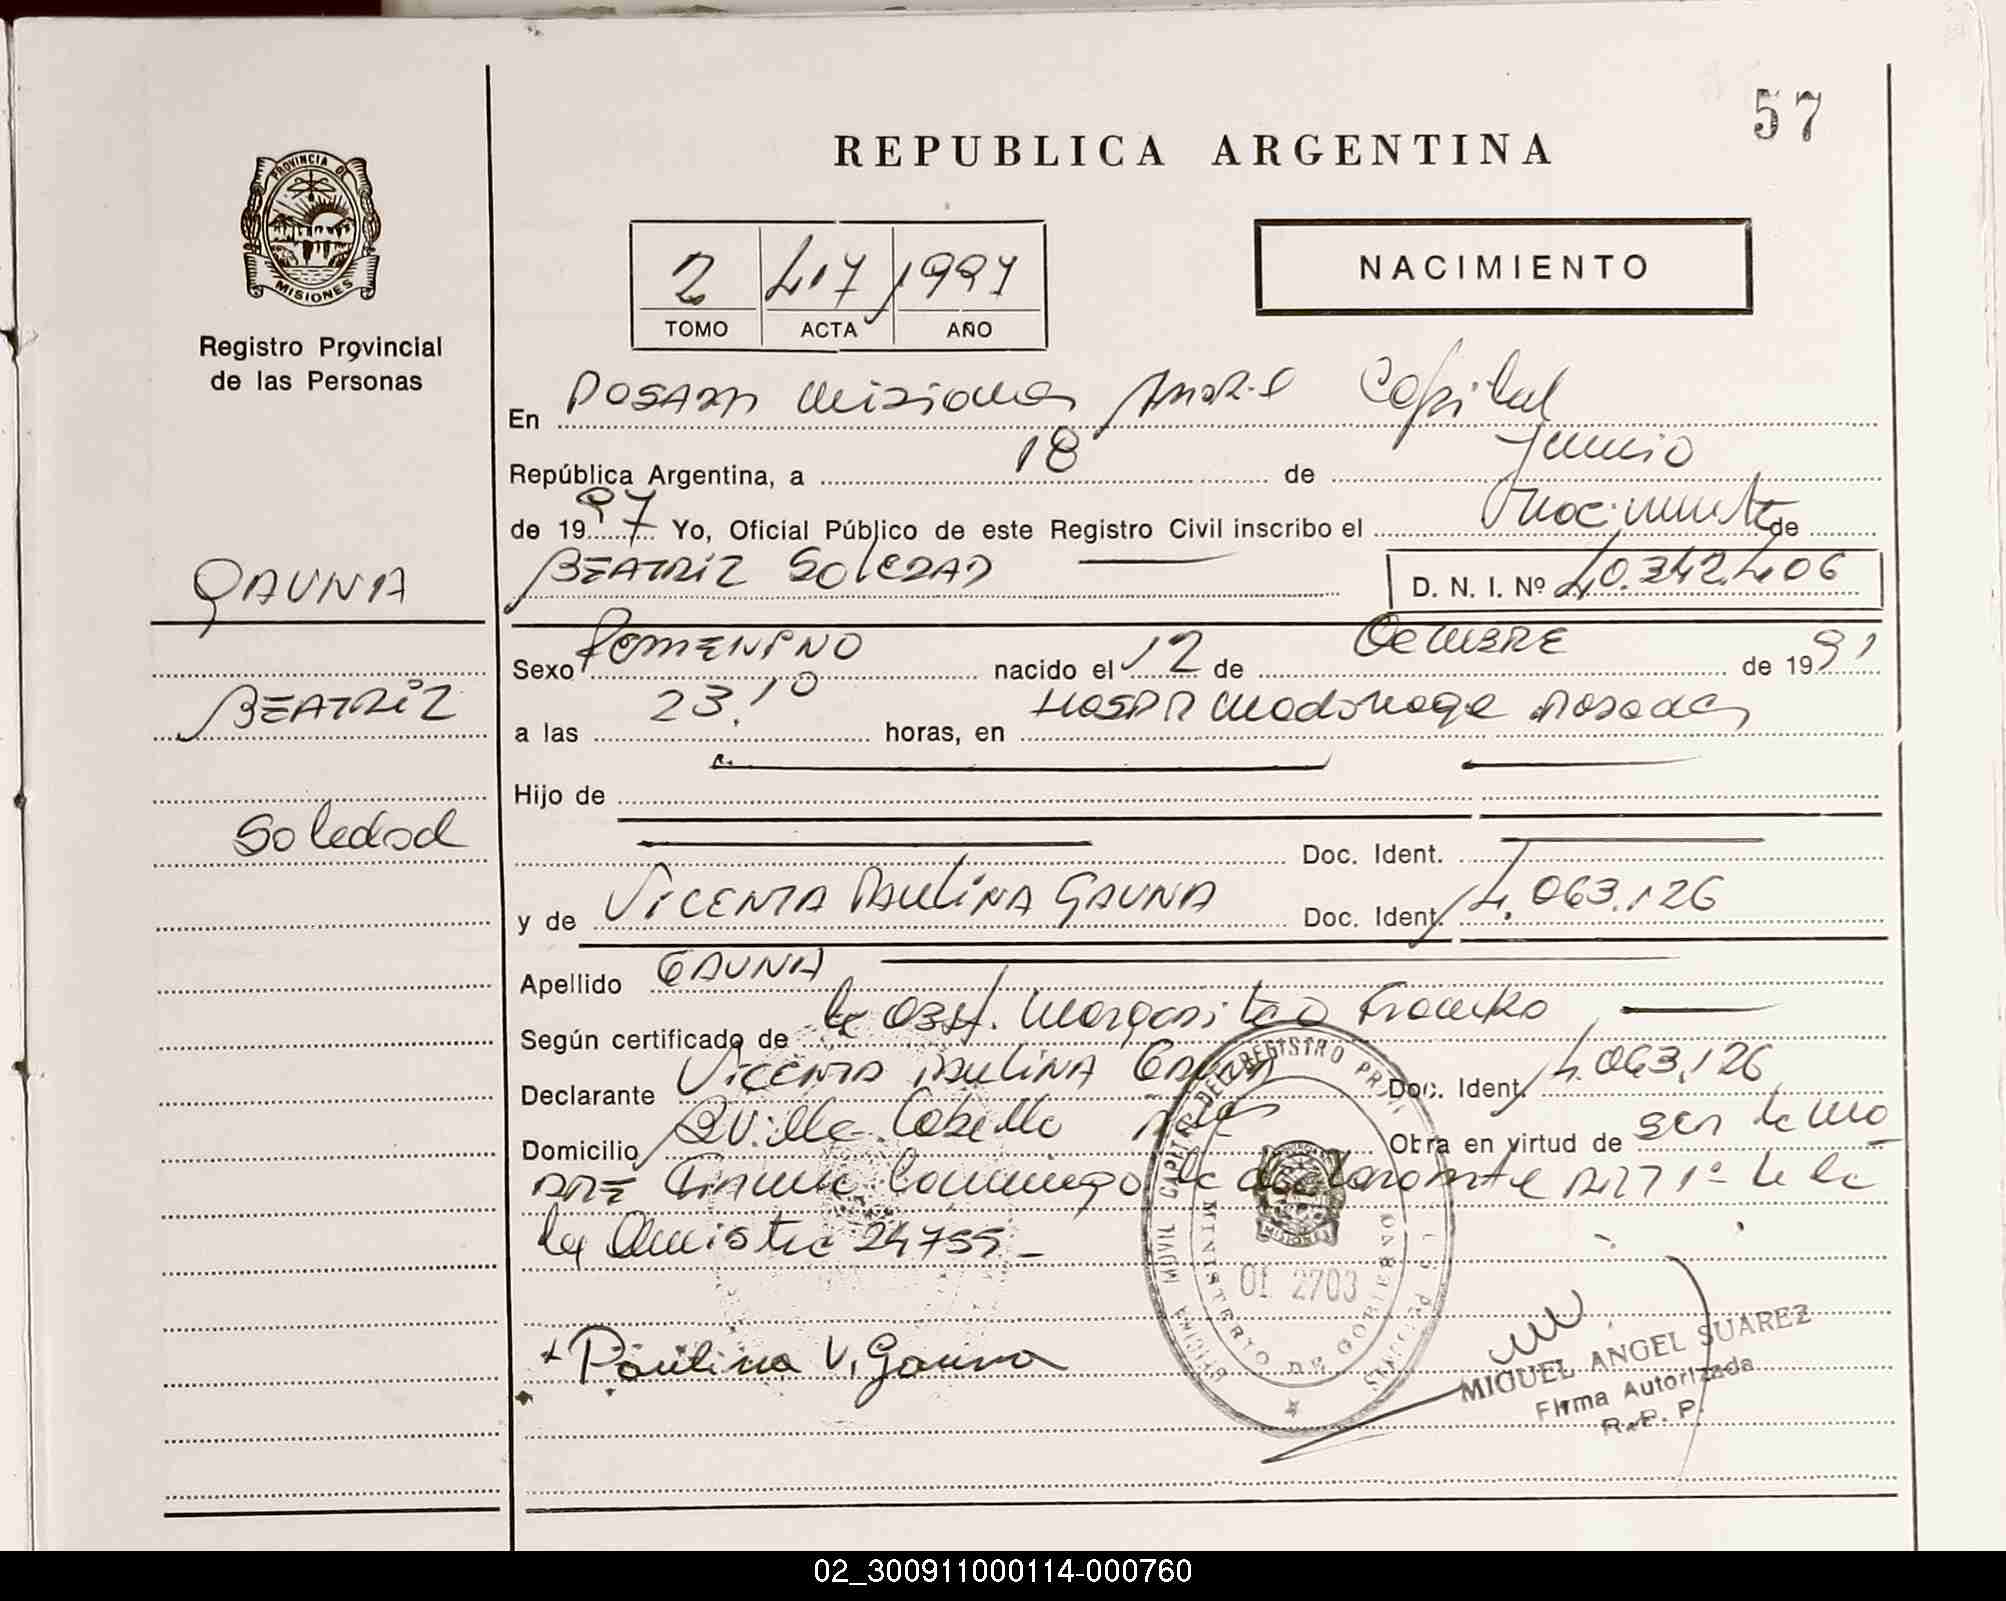 57
REPUBLICA ARGENTINA
PROVINCIA DE
MISIONES
Registro Provincial
de las Personas
NACIMIENTO
2 417 1997
TOMO ACTA AÑO
En Posadas Misiones Capital
República Argentina, a 18 de Junio
de 1997 Yo, Oficial Público de este Registro Civil inscribo el Nacimiento de
BEATRIZ SOLEDAD D. N. I. Nº 40.342.406
GAUNA
BEATRIZ
Soledad
Sexo FEMENINO nacido el 12 de OCTUBRE de 1991
a las 23.10 horas, en HOSP R Madariaga Posadas
Hijo de
Doc. Ident.
y de VICENTA PAULINA GAUNA Doc. Ident. 4.063.126
Apellido GAUNA
Según certificado de la Obst. Margarita Franko
Declarante VICENTA PAULINA GAUNA Doc. Ident. 4.063.126
Domicilio Villa Cabello Obra en virtud de ser la ma
DRE Firma la declarante ART 1º de la
ley 24755
OFICINA MOVIL CAPITAL DEL REGISTRO
MINISTERIO DE GOBIERNO
01 2703
+ Paulina V. Gauna
MIGUEL ANGEL SUAREZ
Firma Autorizada
R. P. P.
02_300911000114-000760